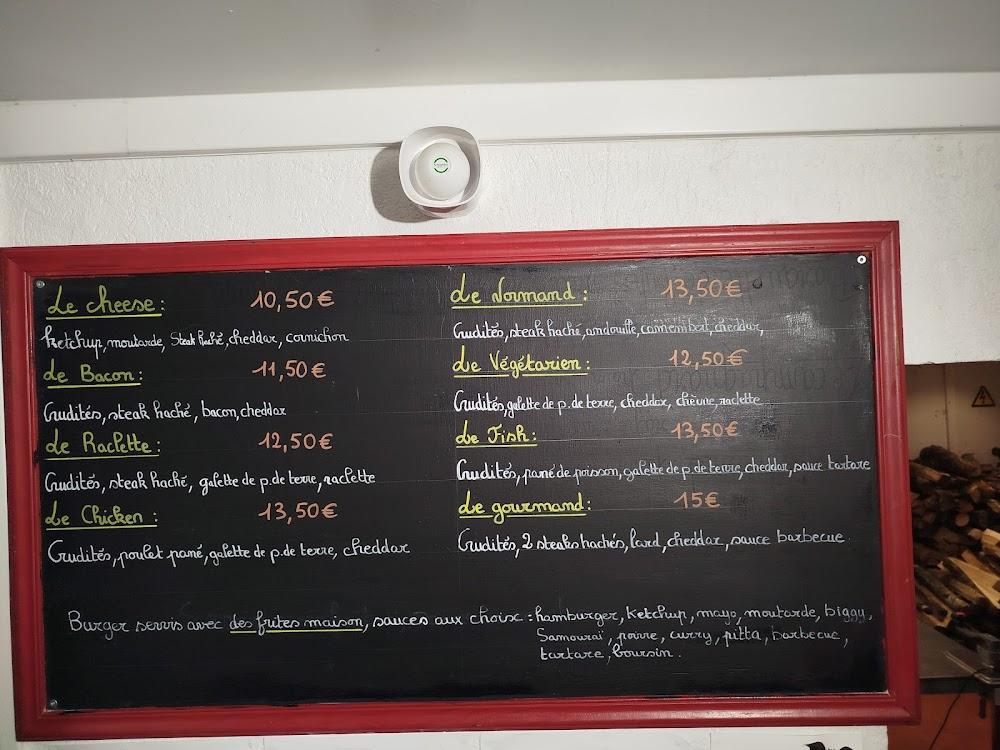 Le cheese : 10,50€
Ketchup, moutarde, Steak haché, cheddar, cornichon
Le Bacon : 11,50€
Crudités, steak haché, bacon, cheddar
Le Raclette : 12,50€
Crudités, steak haché, galette de p. de terre, raclette
Le Chicken : 13,50€
Crudités, poulet pané, galette de p. de terre, cheddar
Le Normand : 13,50€
Crudités, steak haché, andouille, camembert, cheddar,
Le Végétarien : 12,50€
Crudités, galette de p. de terre, cheddar, chèvre, raclette
Le Fish : 13,50€
Crudités, pané de poisson, galette de p. de terre, cheddar, sauce tartare
Le gourmand : 15€
Crudités, 2 steaks hachés, lard, cheddar, sauce barbecue
Burger servis avec des frites maison, sauces aux choixe : hamburger, ketchup, mayo, moutarde, biggy,
Samouraï, poivre, curry, pitta, barbecue,
tartare, boursin.